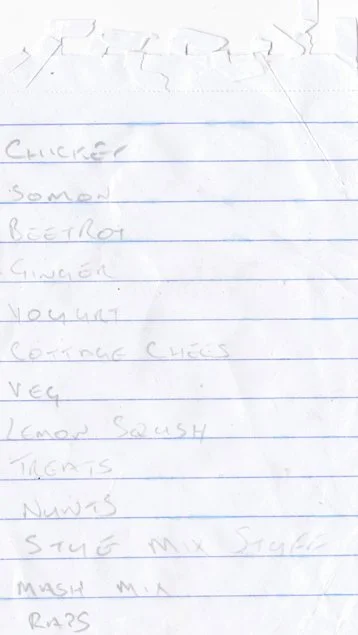 CHICKEN
SOMON
BEETROT
GINGER
YOGURT
COTTAGE CHEES
VEG
LEMON SQUSH
TREATS
NUNTS
STUE MIX
MASH MIX